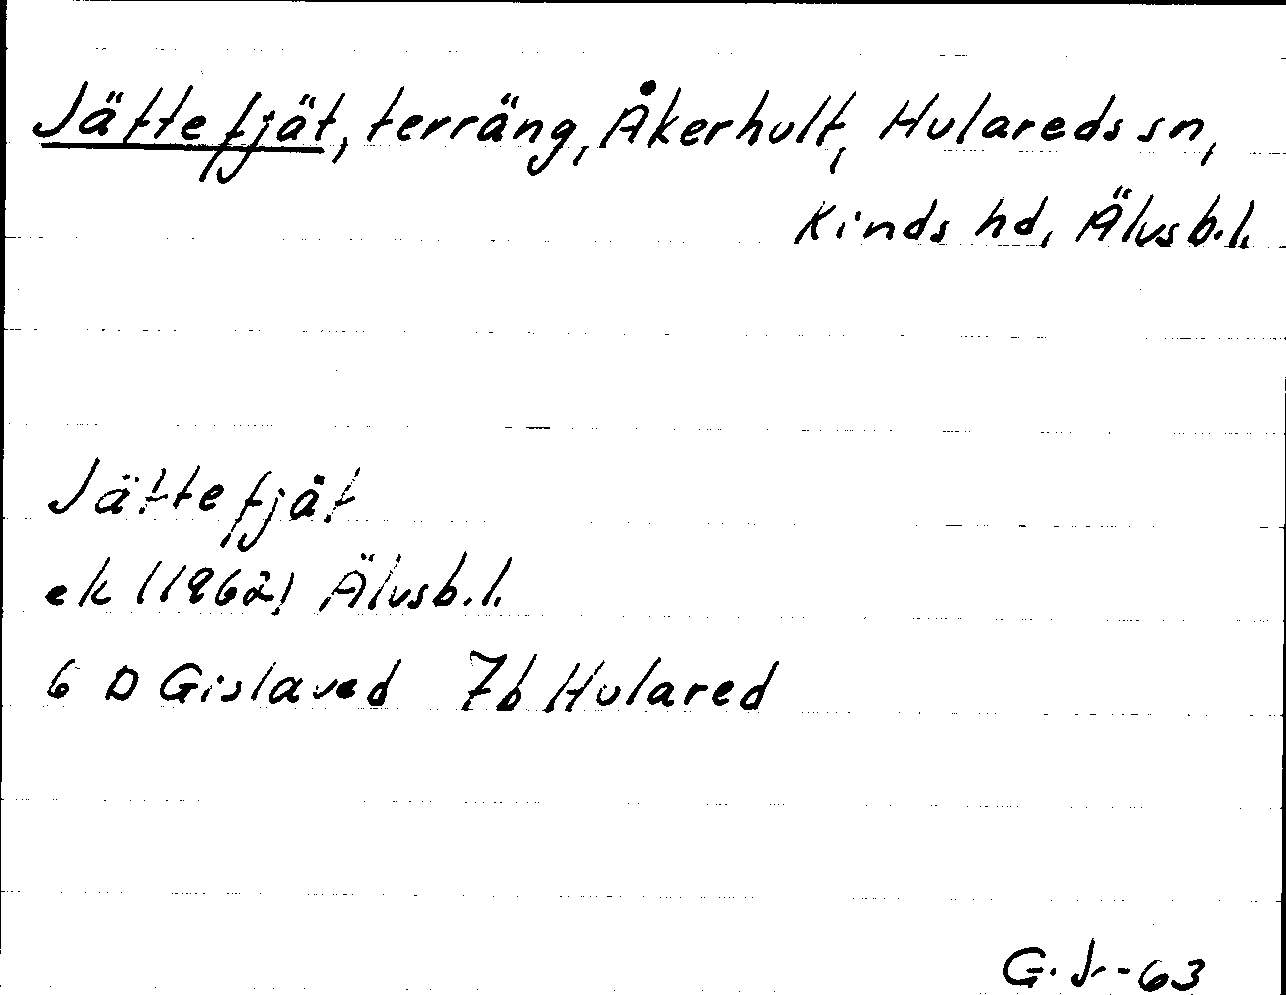 Jättefjät, terräng, Åkerhult, Hulareds sn,
Kinds hd, Älvsb.l.
Jättefjät
ek (1962) Älvsb.l.
6 D Gislaved 7b Hulared
G.J.-63